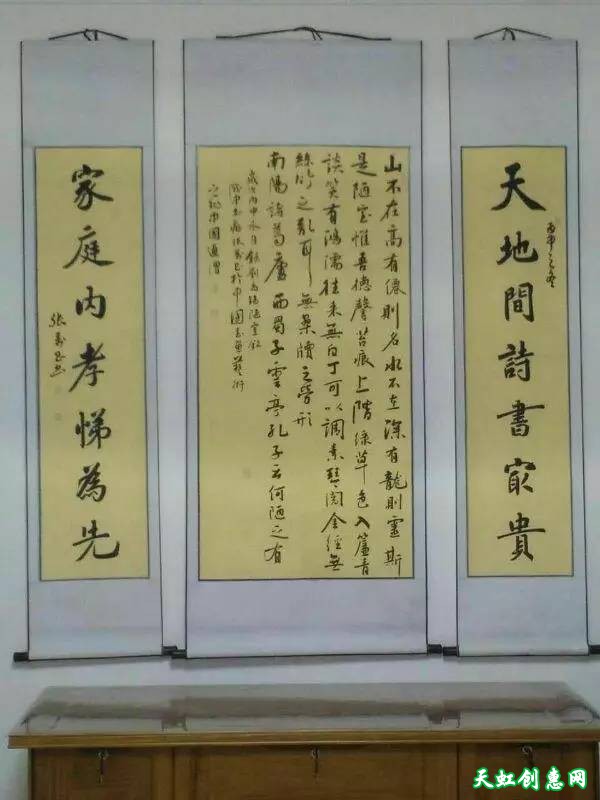 天地間詩書最貴
丙申之冬
山不在高有僊則名水不在深有龍則靈斯
是陋室惟吾德馨苔痕上階綠草色入簾青
談笑有鴻儒往来無白丁可以調素琴閲金經無
絲竹之亂耳無案牘之勞形
南陽諸葛廬西蜀子雲亭孔子云何陋之有
歲次丙申冬月錄劉禹錫陋室銘
於中國書畫藝術
之鄉中國通渭
家庭内孝悌為先
張
天虹创惠网